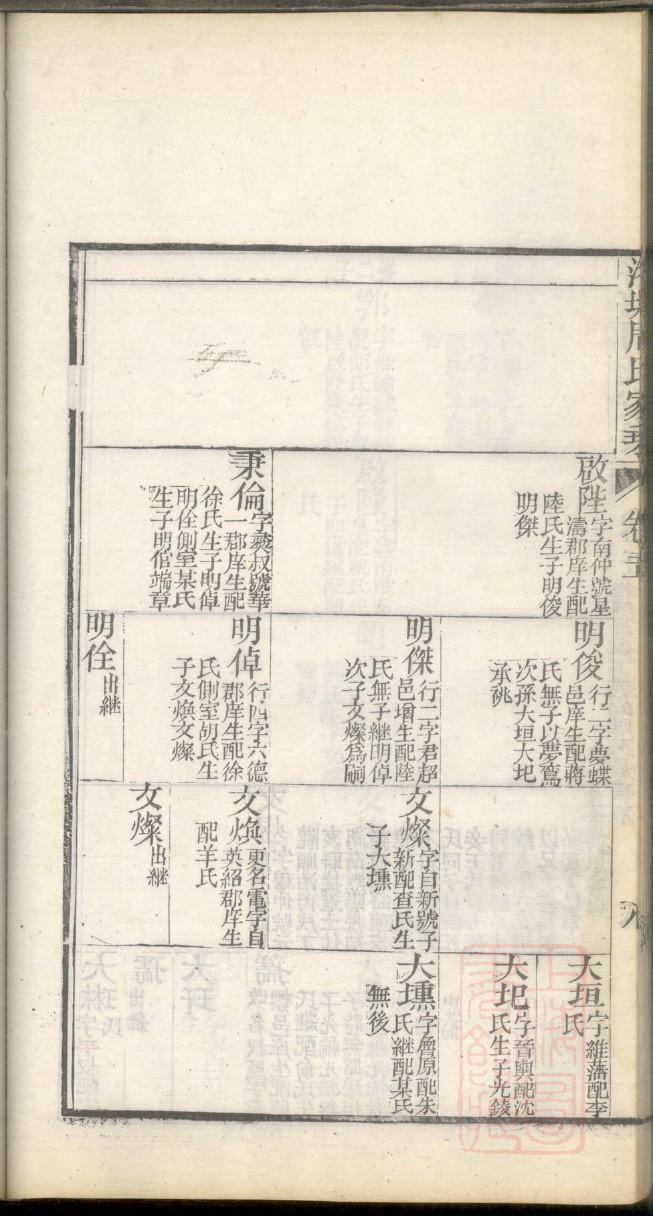 周氏家乘
卷五
八
啟陞
字南仲號星
濤郡庠生配
陸氏生子明俊
明傑
秉倫
字彝叔號華
一郡庠生配
徐氏生子明倬
明佺側室某氏
生子明倌端章
明俊
行二字夢蝶
邑庠生配蔣
氏無子以夢篤
次孫大垣大圯
承祧
明傑
行二字君超
邑增生配陸
氏無子繼明倬
次子文燦為嗣
明倬
行四字六德
郡庠生配徐
氏側室胡氏生
子文煥文燦
明佺
出繼
文燦
字自新號子
新配查氏生
子大壎
文煥
更名電字自
英紹郡庠生
配羊氏
文燦
出繼
大垣
字維藩配李
氏
大圯
字晉輿配沈
氏生子光錂
大壎
字層原配朱
氏繼配某氏
無後